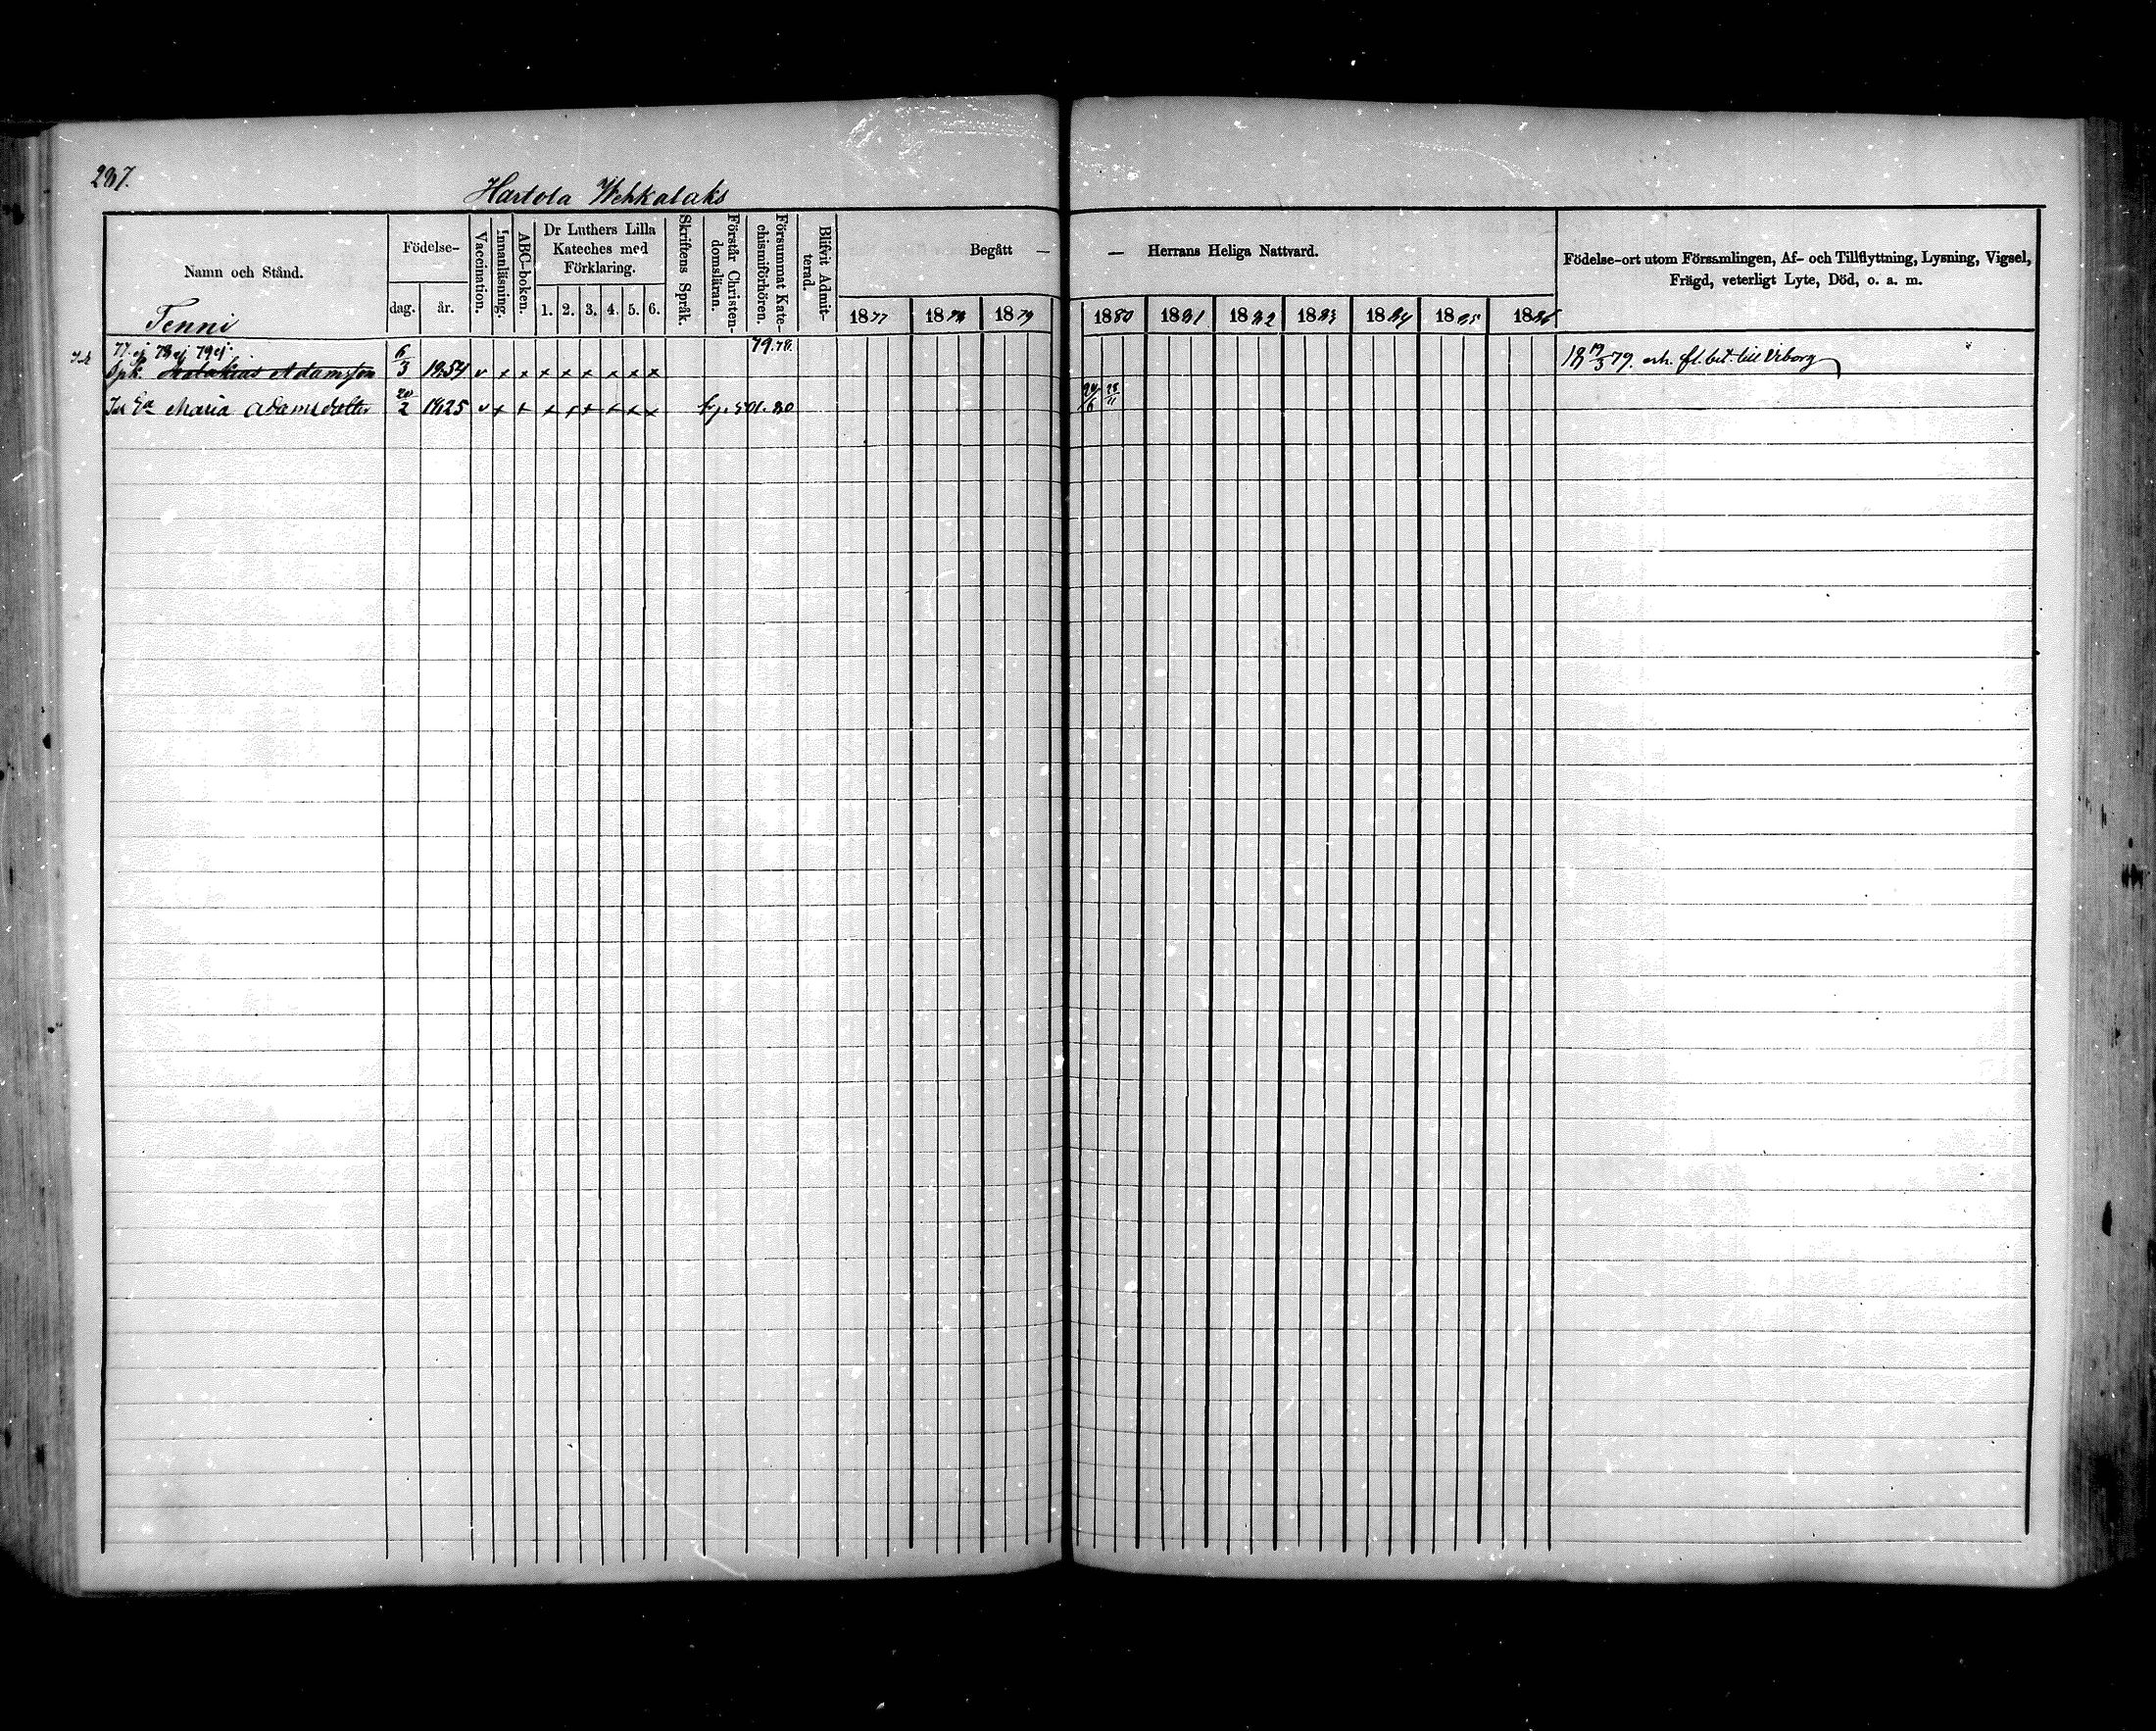 287.
Hartola Wehkalaks
Namn och Stånd.
Födelse-
dag.
år.
Vaccination.
Innanläsning.
ABC-boken.
Dr Luthers Lilla
Kateches med
Förklaring.
1. 2. 3. 4. 5. 6.
Skriftens Språk.
Förstår Christen-
domsläran.
Försummat Kate-
chismiförhören.
Blifvit Admit-
terad.
Begått — — Herrans Heliga Nattvard.
1877 1878 1879 1880 1881 1882 1883 1884 1885 1886
Födelse-ort utom Församlingen, Af- och Tillflyttning, Lysning, Vigsel,
Frägd, veterligt Lyte, Död, o. a. m.
Tenni
77 ej 78 ej 79 ej. 79. 78.
Malakias Adamsson 6/3 1854 v x x x x x x x x 18 19/3 79. erh. fl. bet. till Viborg
Maria Adamsdotter 20/2 1825 v x x x x x x x x 80 28/11